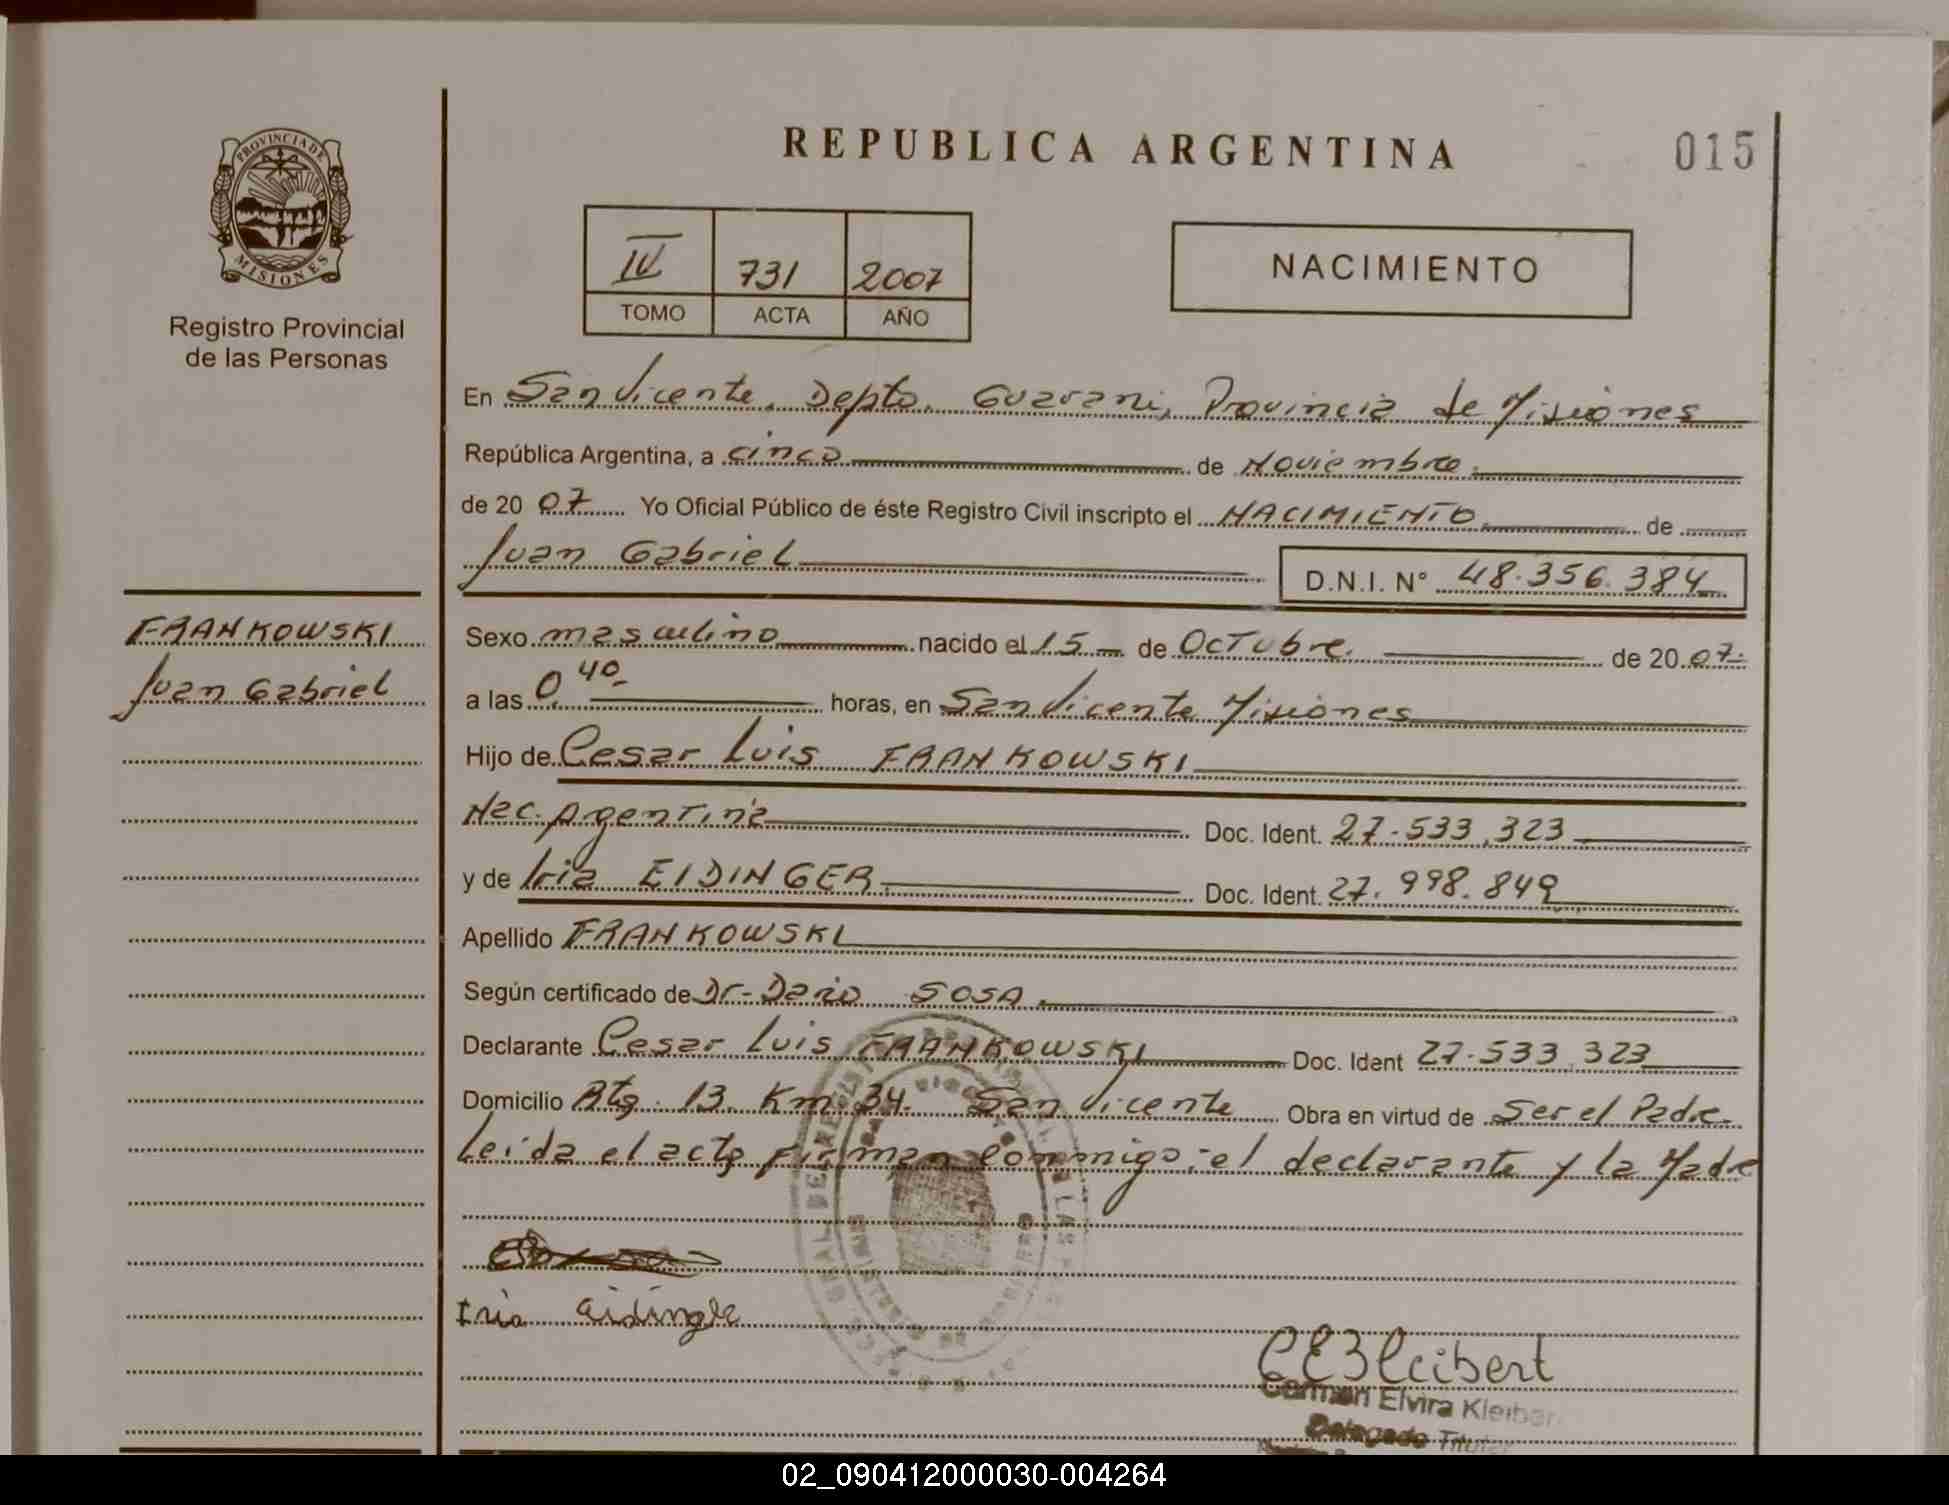 PROVINCIA DE
MISIONES
Registro Provincial
de las Personas
FRANKOWSKI
Juan Gabriel
REPUBLICA ARGENTINA
015
IV 731 2007
TOMO ACTA AÑO
NACIMIENTO
En San Vicente, Depto. Guarani, Provincia de Misiones
República Argentina, a cinco de Noviembre.
de 2007 Yo Oficial Público de éste Registro Civil inscripto el NACIMIENTO de
Juan Gabriel D.N.I. N° 48.356.384
Sexo masculino nacido el 15 de Octubre. de 2007.
a las 0,40 horas, en San Vicente Misiones
Hijo de Cesar Luis FRANKOWSKI
Nac. Argentina Doc. Ident. 27.533.323
y de Iria EIDINGER Doc. Ident. 27.998.849
Apellido FRANKOWSKI
Según certificado de Dr. Dario SOSA.
Declarante Cesar Luis FRANKOWSKI Doc. Ident 27.533.323
Domicilio Rta. 13. Km 34. San Vicente Obra en virtud de Ser el Padre.
Leída el acta firman conmigo: el declarante y la Madre
Iria eidinger
CEKleibert
Carmen Elvira Kleiber
Delegado Titular
02_090412000030-004264